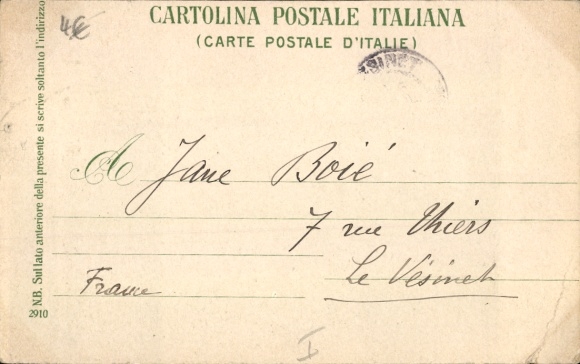 4€
CARTOLINA POSTALE ITALIANA
(CARTE POSTALE D'ITALIE)
SINET
A Jane Boié
7 rue Thiers
Le Vésinet
France
N.B. Sul lato anteriore della presente si scrive soltanto l'indirizzo
2910
I